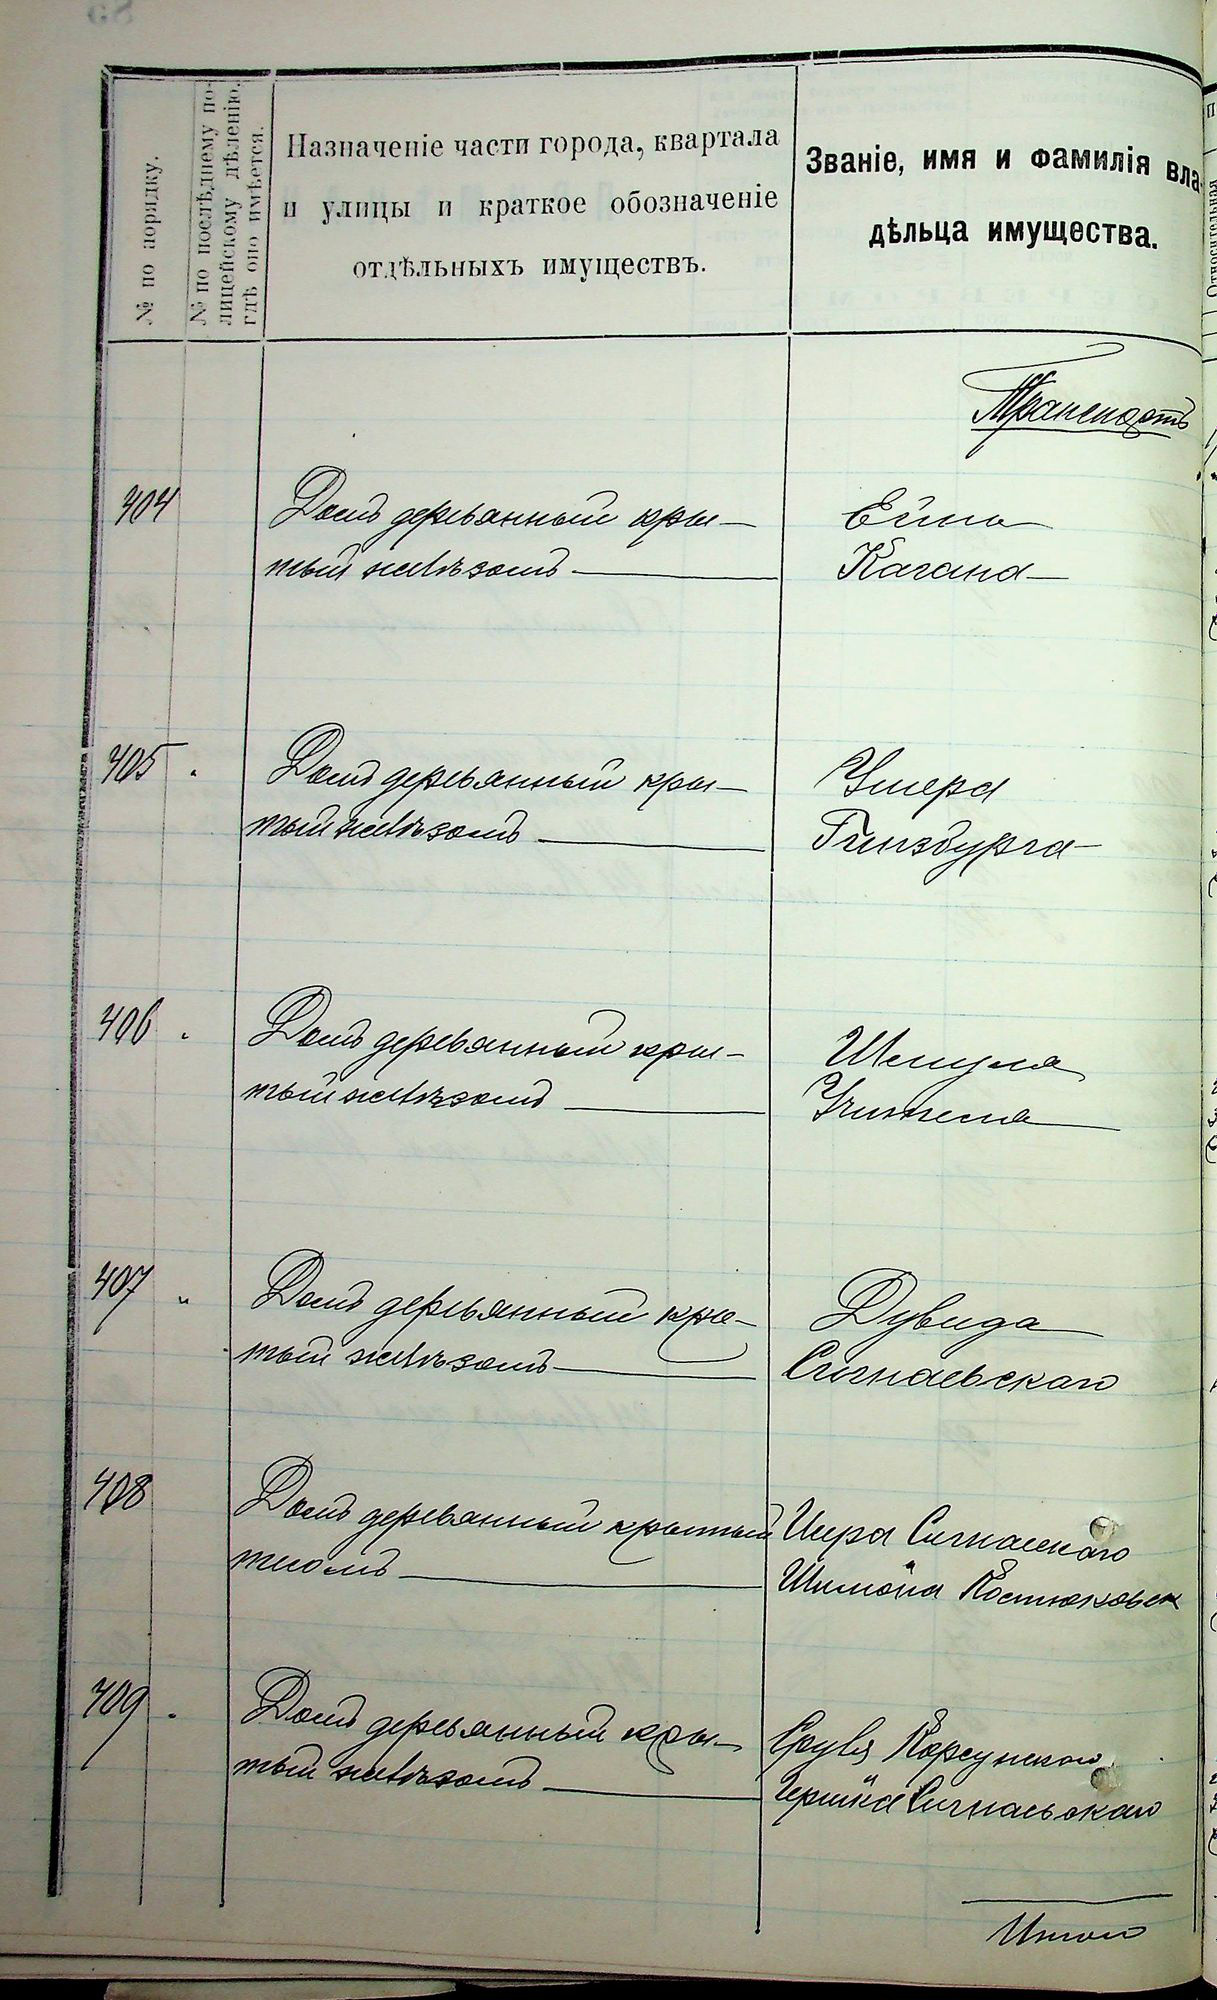 № по порядку.
№ по послѣднему по-
лицейскому дѣленію,
гдѣ оно имѣется.
Назначеніе части города, квартала
и улицы и краткое обозначеніе
отдѣльныхъ имуществъ.
Званіе, имя и фамилія вла-
дѣльца имущества.
Транспортъ
404
Домъ деревянный кры-
тый желѣзомъ
Ейны
Кагана
405
Домъ деревянный кры-
тый желѣзомъ
Умера
Гинзбурга
406
Домъ деревянный кры-
тый желѣзомъ
Шмуля
Учителя
407 "
Домъ деревянный кры-
тый желѣзомъ
Дувида
Сигнаевскаго
408
Домъ деревянный крытый
толомъ
Сигнаевскаго
Шимона
409
Домъ деревянный кры-
тый желѣзомъ
Срувя Корсунскаго
Гершка Сигнаевскаго
Итого